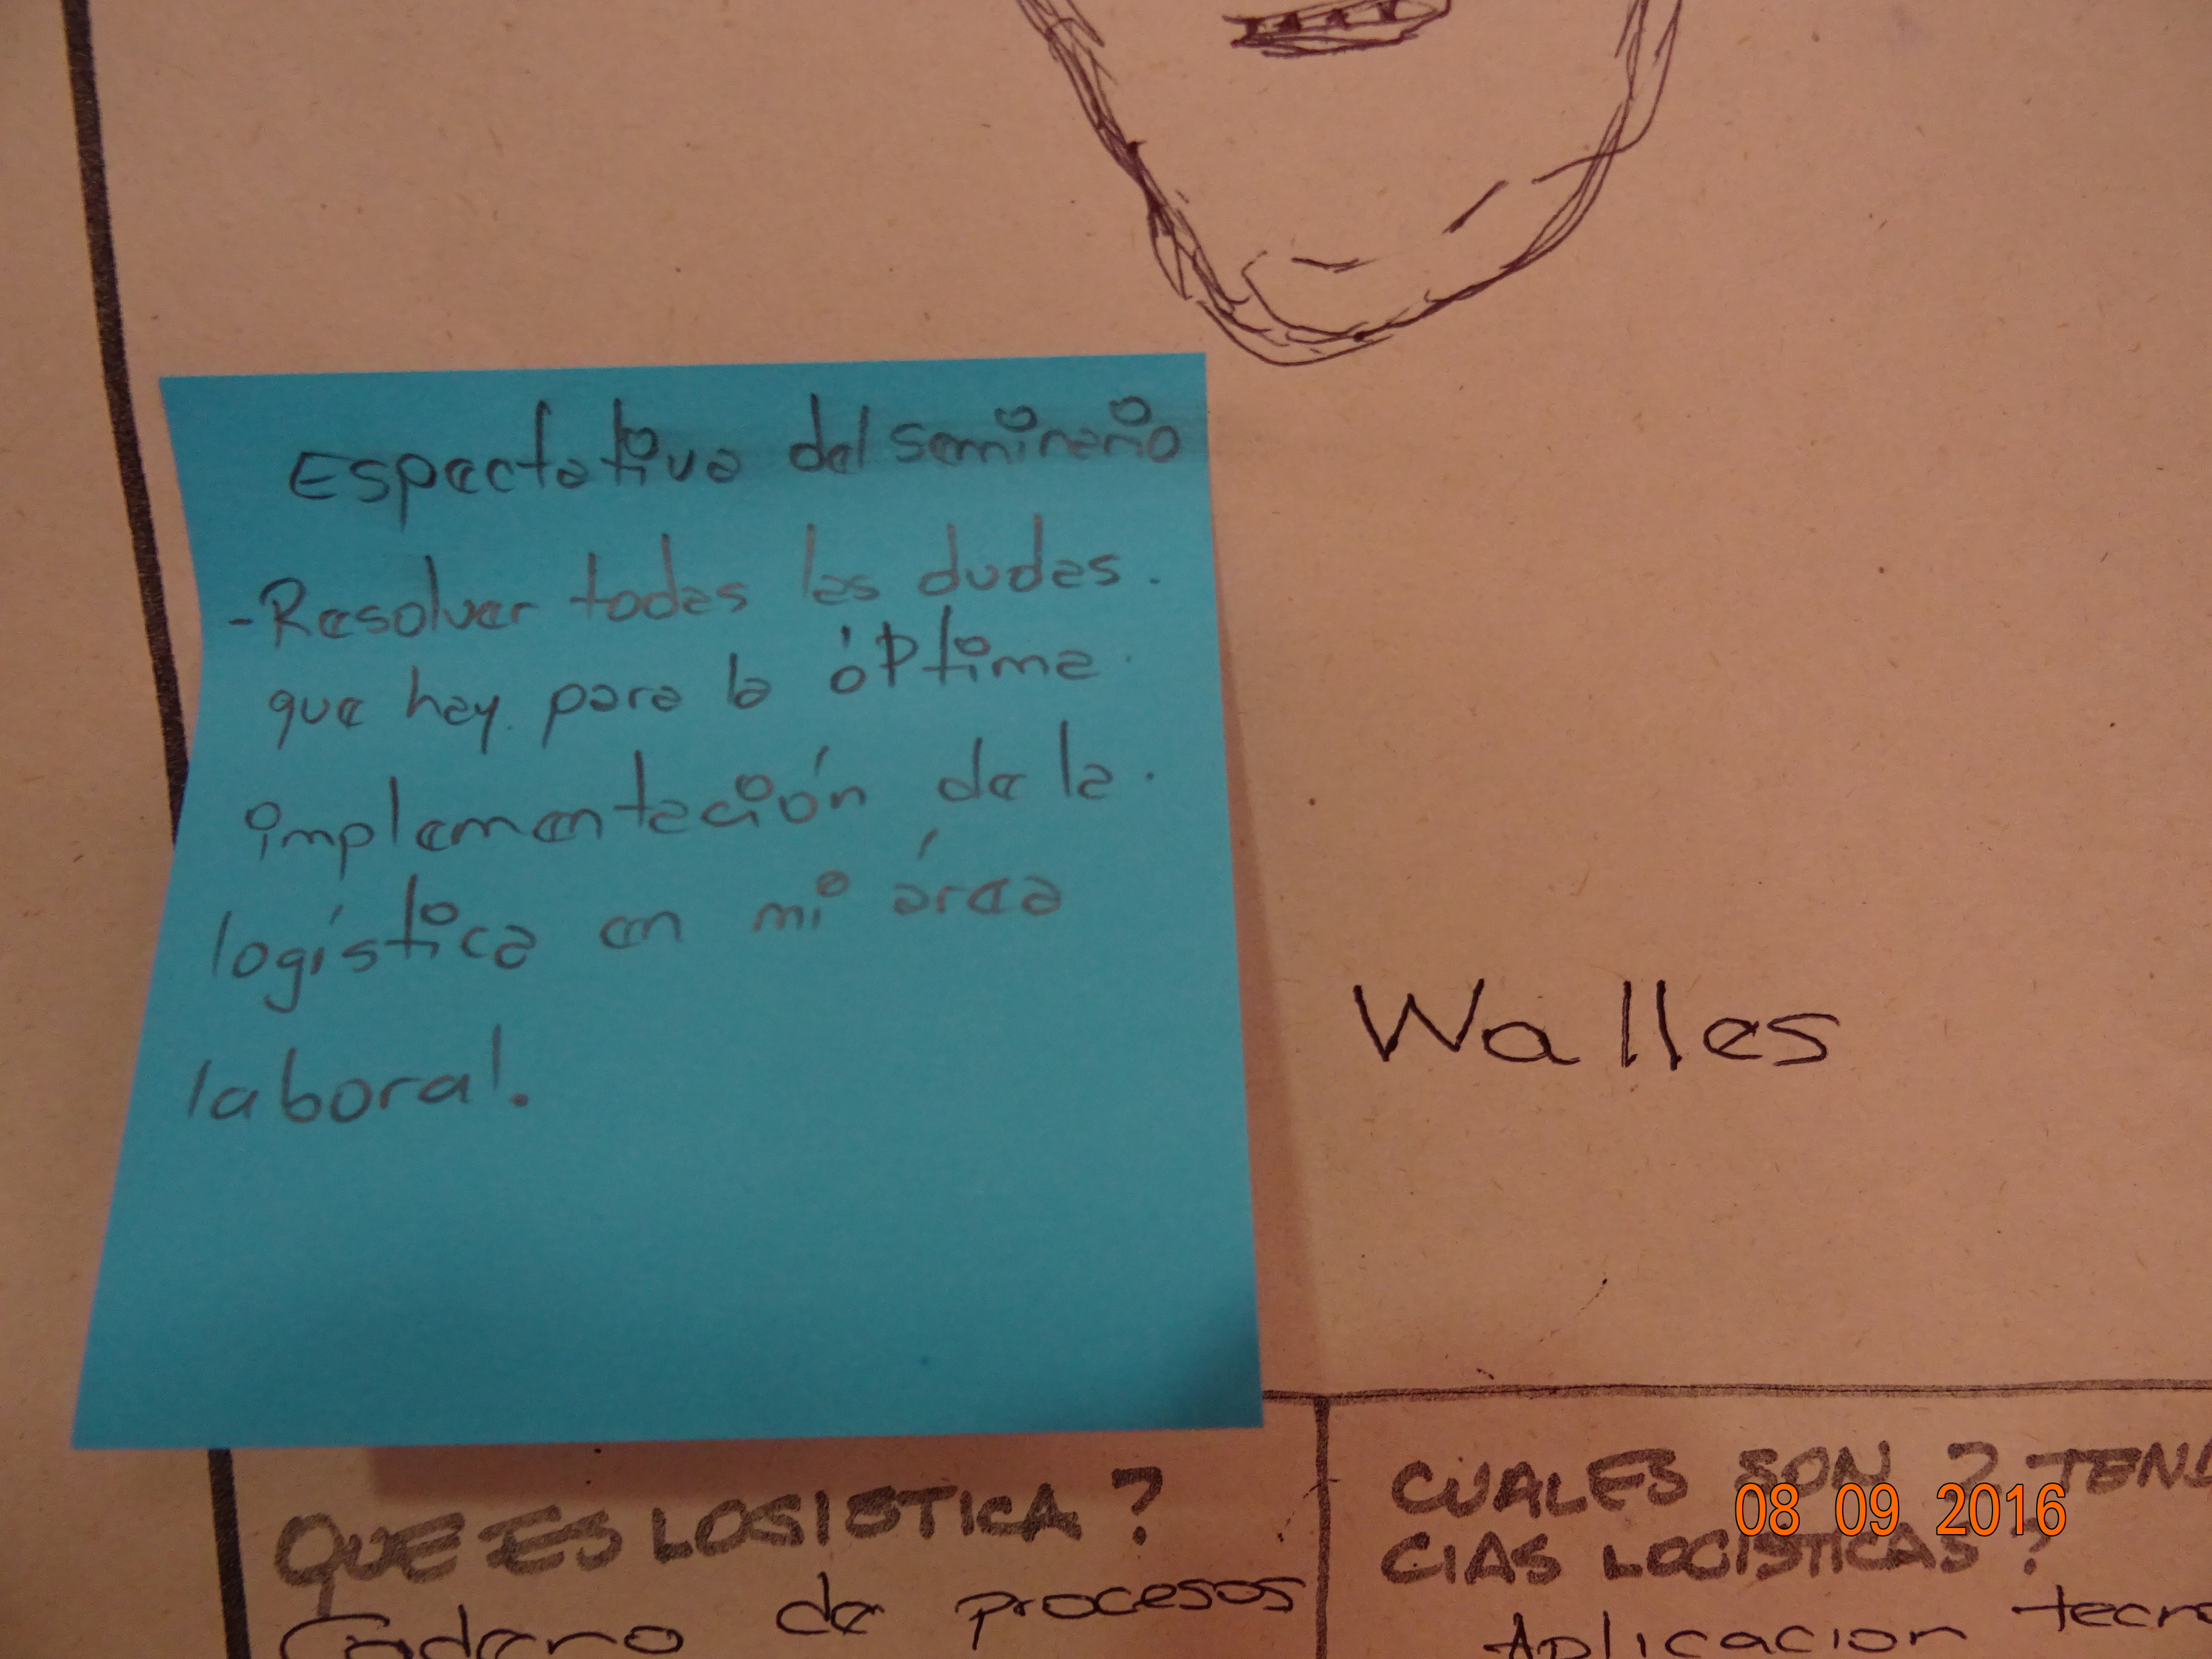 Espectativa del seminario
- Resolver todas las dudas.
que hay para la óptima
implementación de la
logística en mi área
laboral.
Walles
QUE ES LOGISTICA ?
de procesos
CUALES SON 2 TEN
CIAS LOGISTICAS ?
Aplicacion tecn
08 09 2016